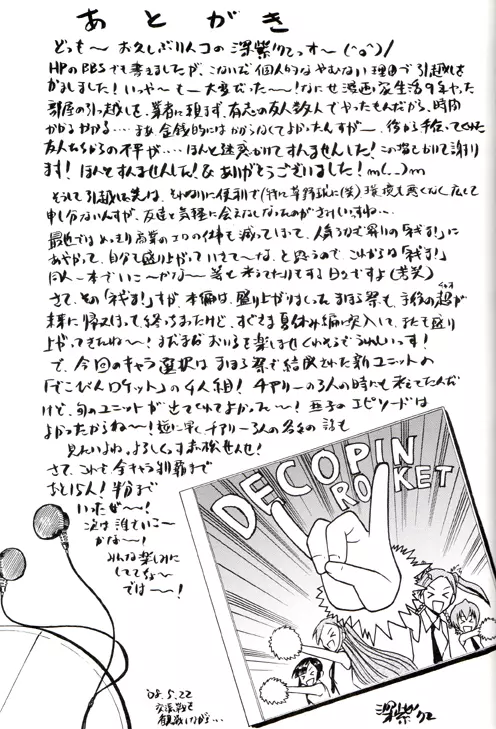 あとがき
どっも〜お久しぶりんコの深紫クビっす〜(^o^)/
HPのBBSでも書きましたが、こないだ個人的なやむない理由で引越しを
かましました！いっや〜もー大変だった〜！なにせ漫画家生活9年やった
部屋の引っ越しを、業者に頼まず、有志の友人数人でやったもんだから、時間
かかるかかる…まぁ金銭的にはかからなくてよかったんすが〜後から手伝ってくれた
友人たちからの不平が…ほんと迷惑かけてすんませんした！この場をかりて謝り
ます！ほんとすんませんした！&ありがとうございました！m(__)m
そうして引越し先は、それなりに便利で(特に草野球に(笑)環境も悪くなく広くて
申し分ないんすが、友達と気軽に会えなくなったのがさみしいすね…
最近ではめっきり商業のエロの仕事も減ってしまって、人気うなぎ昇りの「ネギま!」に
あやかって、自分も盛り上がっていきて〜な、と思うので、これからは「ネギま!」
同人一本でいこ〜かな〜等と考えてたりもする日々ですよ(苦笑)
さて、その「ネギま!」すが、本編は、盛り上がりまくったまほら祭も、予役の超が
未来に帰えってしまって終っちまったけど、すぐさま夏休み編に突入して、またも盛り
上がってきたね〜！まだまだおいらを楽しませてくれそうでうれしいっす！
で、今回のキャラ選択はまほら祭で結成された新ユニットの
「でこぴんロケット」の4人組！チアリーの3人の時にも考えてたんだ
けど、旬のユニットが出てくれてよかった〜！亜子のエピソードは
よかったからね〜！逆に早くチアリー3人の各々の話も
見たいよね。よろしくっす赤松せんせ！
さて、これで全キャラ制覇まで
あと15人！半分まで
いったぜ〜！
次は誰でいこ〜
かな〜！
みんな楽しみに
しててな〜
では〜！
DECOPIN
ROCKET
'08.5.22
交流戦を
観戦しながら…
深紫クビ